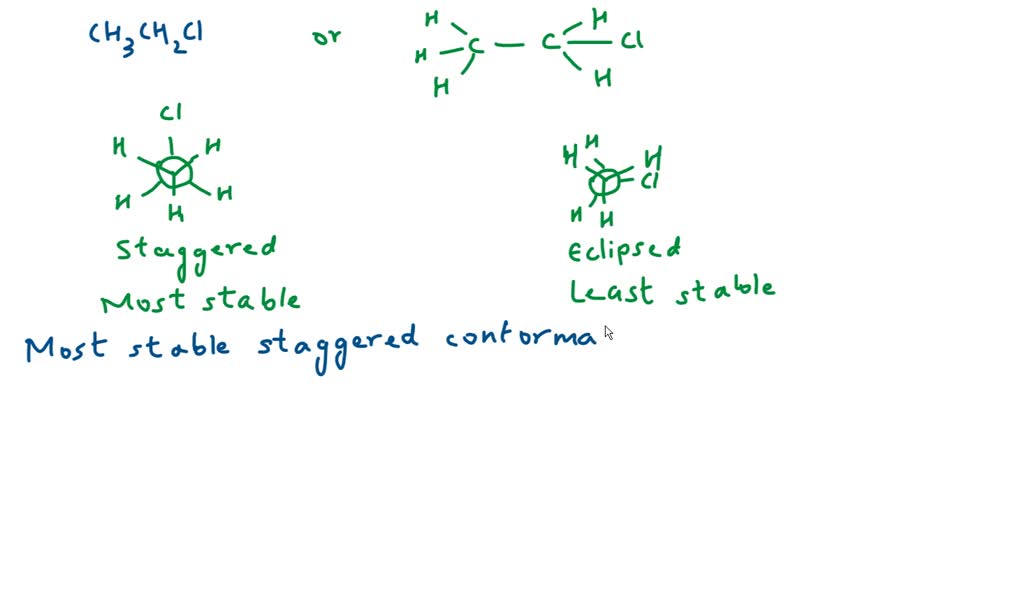 CH3CH2Cl or H H H C — C H Cl H
Cl
H H
H H
H
H
H H
Cl
H H
Staggered Eclipsed
Most stable Least stable
Most stable staggered conforma